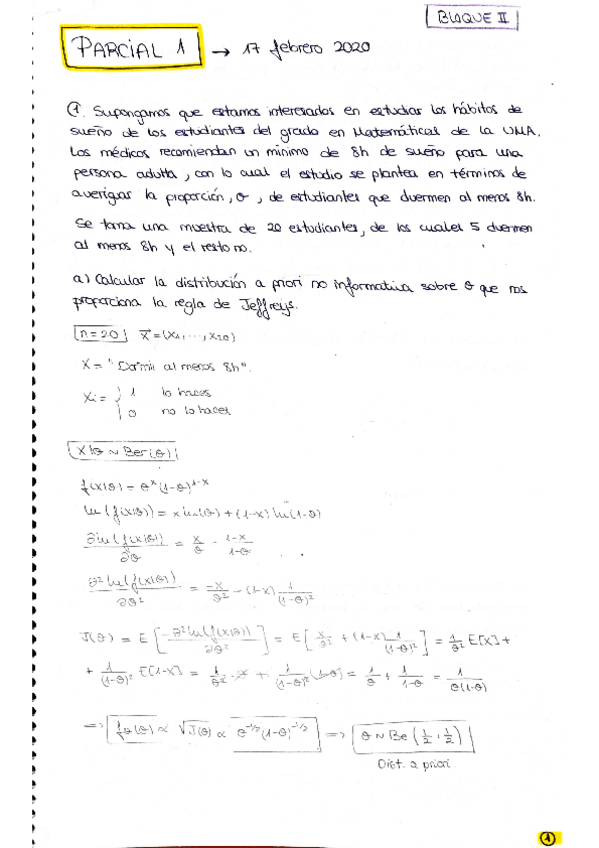 BLOQUE II
PARCIAL 1 → 17 febrero 2020
1. Supongamos que estamos interesados en estudiar los hábitos de
sueño de los estudiantes del grado en Matemáticas de la UMA.
Los médicos recomiendan un mínimo de 8h de sueño para una
persona adulta, con lo cual el estudio se plantea en términos de
averiguar la proporción, θ, de estudiantes que duermen al menos 8h.
Se toma una muestra de 20 estudiantes, de los cuales 5 duermen
al menos 8h y el resto no.
a) Calcular la distribución a priori no informativa sobre θ que nos
proporciona la regla de Jeffreys.
n=20 X⃗=(X1,...,X20)
X = "Dormir al menos 8h".
Xi = { 1 lo haces
0 no lo haces
X|θ ~ Ber(θ)
f(x|θ) = θ^x (1-θ)^{1-x}
ln(f(x|θ)) = x ln(θ) + (1-x) ln(1-θ)
∂ln(f(x|θ))/∂θ = x/θ - (1-x)/(1-θ)
∂²ln(f(x|θ))/∂θ² = -x/θ² - (1-x) 1/(1-θ)²
J(θ) = E[-∂²ln(f(x|θ))/∂θ²] = E[x/θ² + (1-x) 1/(1-θ)²] = 1/θ² E[x] +
+ 1/(1-θ)² E[1-x] = 1/θ² · θ + 1/(1-θ)² (1-θ) = 1/θ + 1/(1-θ) = 1/(θ(1-θ))
=> fθ(θ) ∝ √J(θ) ∝ θ^{-1/2} (1-θ)^{-1/2} => θ ~ Be(1/2, 1/2)
Dist. a priori
1